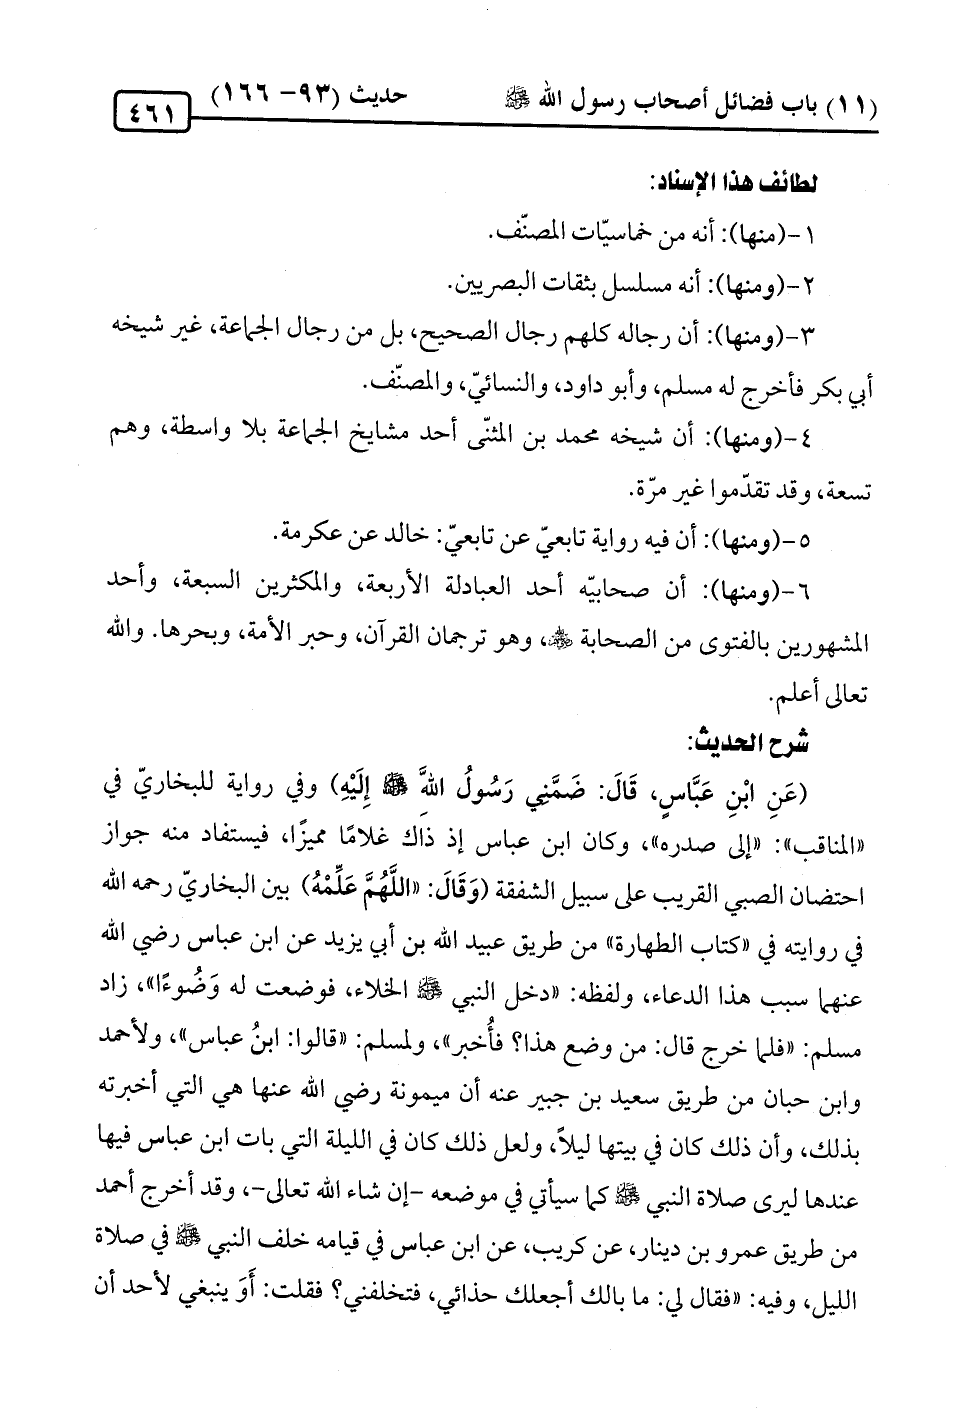 (١١) باب فضائل أصحاب رسول الله ﷺ حديث (٩٣- ١٦٦) ٤٦١
لطائف هذا الإسناد:
١-(منها): أنه من خماسيّات المصنّف.
٢-(ومنها): أنه مسلسل بثقات البصريين.
٣-(ومنها): أن رجاله كلهم رجال الصحيح، بل من رجال الجماعة، غير شيخه
أبي بكر فأخرج له مسلم، وأبو داود، والنسائيّ، والمصنّف.
٤-(ومنها): أن شيخه محمد بن المثنّى أحد مشايخ الجماعة بلا واسطة، وهم
تسعة، وقد تقدّموا غير مرّة.
٥-(ومنها): أن فيه رواية تابعيّ عن تابعيّ: خالد عن عكرمة.
٦-(ومنها): أن صحابيّه أحد العبادلة الأربعة، والمكثرين السبعة، وأحد
المشهورين بالفتوى من الصحابة ﷺ، وهو ترجمان القرآن، وحبر الأمة، وبحرها. والله
تعالى أعلم.
شرح الحديث:
(عَنِ ابْنِ عَبَّاسٍ، قَالَ: ضَمَّنِي رَسُولُ اللهِ ﷺ إِلَيْهِ) وفي رواية للبخاريّ في
«المناقب»: «إلى صدره»، وكان ابن عباس إذ ذاك غلامًا مميزًا، فيستفاد منه جواز
احتضان الصبي القريب على سبيل الشفقة (وَقَالَ: «اللَّهُمَّ عَلِّمْهُ) بين البخاريّ رحمه الله
في روايته في «كتاب الطهارة» من طريق عبيد الله بن أبي يزيد عن ابن عباس رضي الله
عنهما سبب هذا الدعاء، ولفظه: «دخل النبي ﷺ الخلاء، فوضعت له وَضُوءًا»، زاد
مسلم: «فلما خرج قال: من وضع هذا؟ فأُخبر»، ولمسلم: «قالوا: ابنُ عباس»، ولأحمد
وابن حبان من طريق سعيد بن جبير عنه أن ميمونة رضي الله عنها هي التي أخبرته
بذلك، وأن ذلك كان في بيتها ليلاً، ولعل ذلك كان في الليلة التي بات ابن عباس فيها
عندها ليرى صلاة النبي ﷺ كما سيأتي في موضعه -إن شاء الله تعالى-، وقد أخرج أحمد
من طريق عمرو بن دينار، عن كريب، عن ابن عباس في قيامه خلف النبي ﷺ في صلاة
الليل، وفيه: «فقال لي: ما بالك أجعلك حذائي، فتخلفني؟ فقلت: أَوَ ينبغي لأحد أن